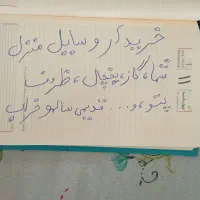 خریدار وسایل منزل
شما، گاز، یخچال، ظروف
پتو، و... قدیمی سالم و خراب
۱۱